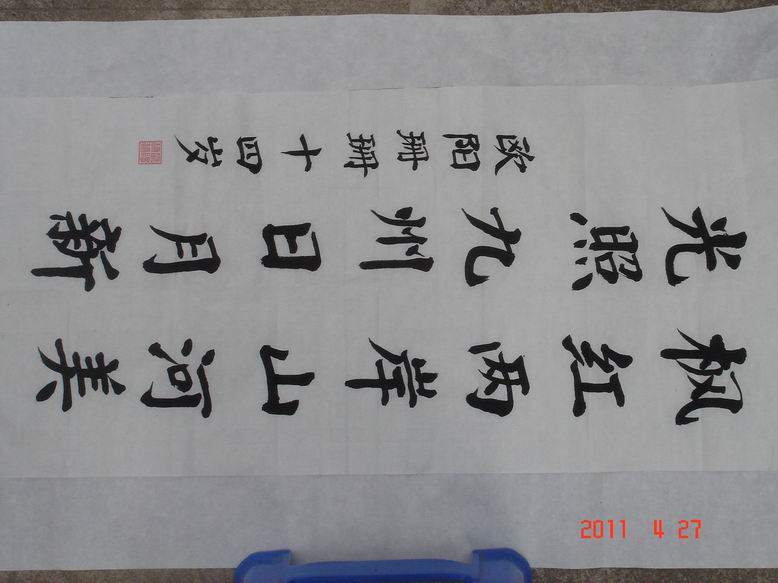 枫红两岸山河美
光照九州日月新
欧阳珊珊十四岁
2011 4 27